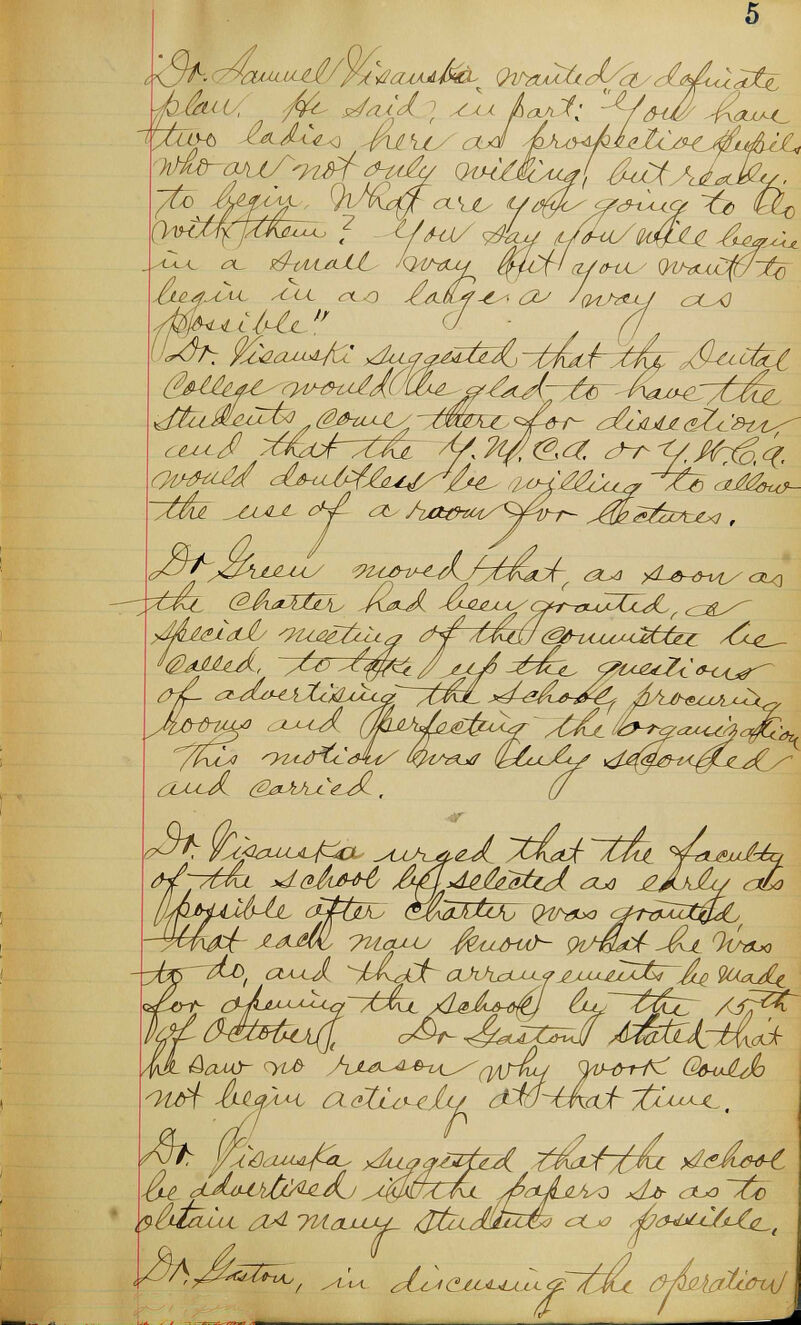 5
Dr. Samuel Visanska wanted a definate
plan. He said, in part: "You have
two ladies here as prospective pupils
who are not only willing, but ready
to begin. What are you going to do
with them? You say you will begin
in a small way but you want to
begin in as large a way as
possible."
Dr. Visanski suggested that the Dental
College would be glad to have the
students come there for dissection,
and that the Y.M.C.A. or Y.W.C.A.
would doubtless be willing to allow
the use of a room for lectures.
Dr Green moved that, as soon as
the charter had been granted, a
special meeting of the committee be
called, to take up the questions
of advertising the school, procuring
rooms and perfecting the organization
This motion was duly seconded
and carried.
Dr. Visanska urged that the faculty
of the school be selected as early as
possible after charter was granted,
that each man know what he was
to do, and that arrangements be made
for opening the school by the 15th
of October. Dr Gaston stated that
he saw no reason why work could
not begin actively at that time.
Dr. Visanska suggested that the school
be advertised in the papers so as to
obtain as many students as possible.
Dr. Gaston, in discussing the operation